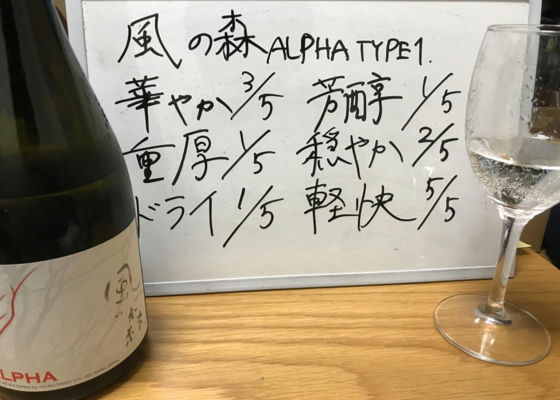 風の森 ALPHA TYPE1.
華やか 3/5 芳醇 1/5
重厚 1/5 穏やか 2/5
ドライ 1/5 軽快 5/5
風の森
ALPHA